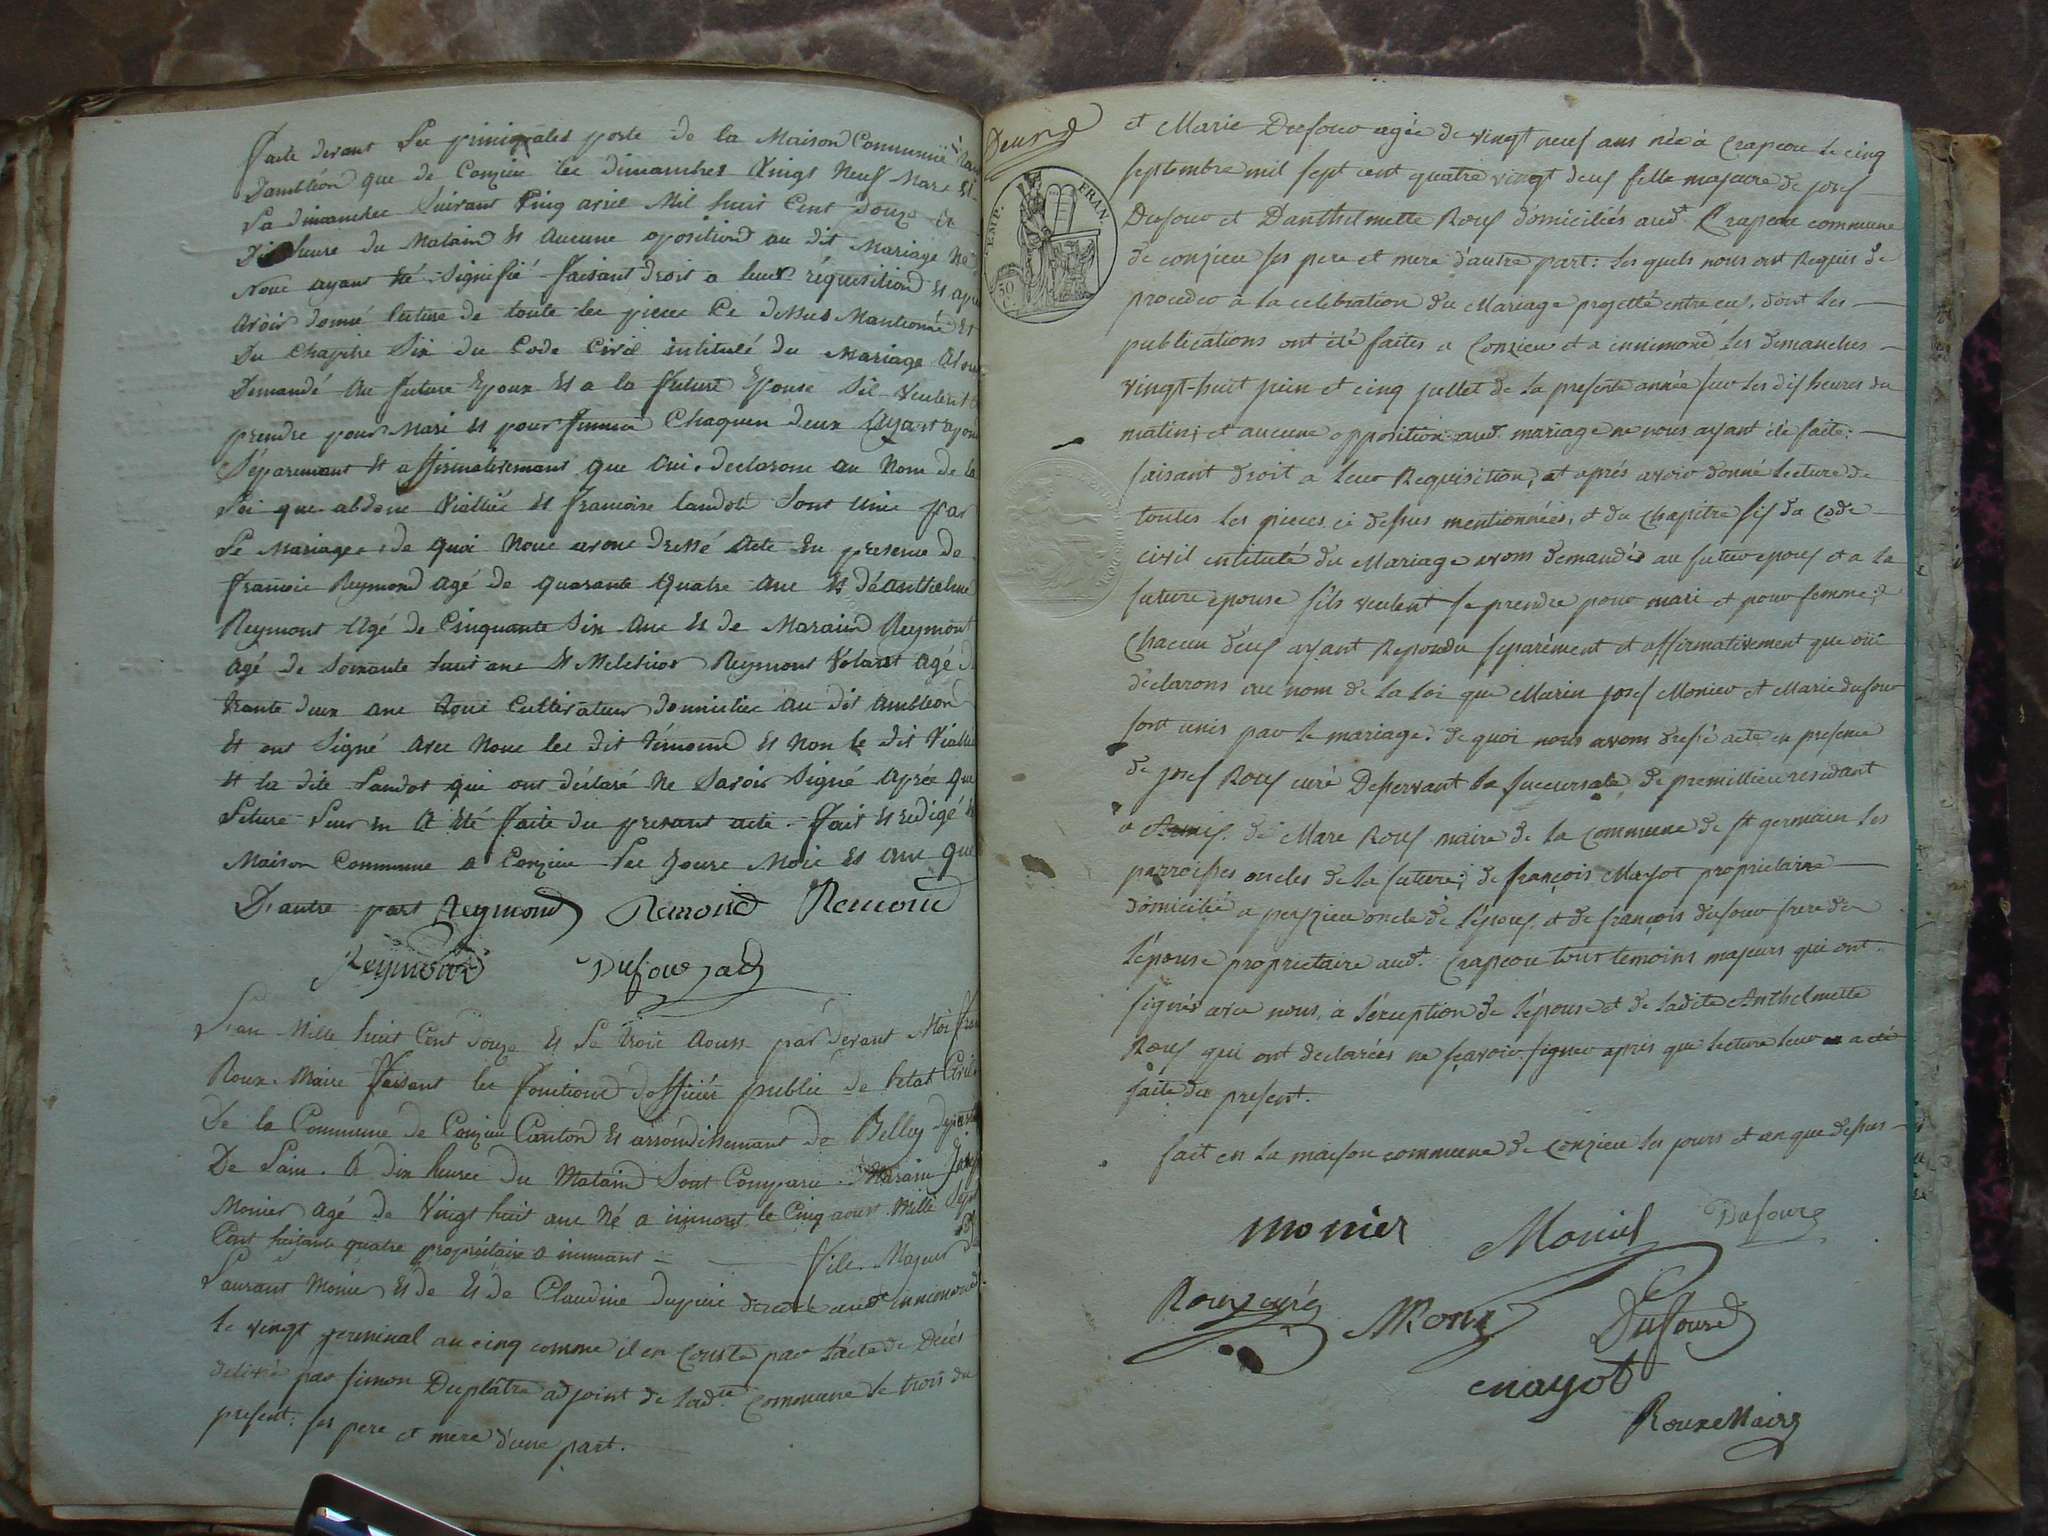 faite devant les principales porte de la Maison Commune
d'ambléon que de Conzieu les dimanches Vingt Neuf Mars Et
Le dimanche Suivant Cinq avril Mil huit Cent douze et
Dix heure du Matain Et Aucune oposition au dit Mariage Ne
Nous ayant été Signifié faisant droit a leur réquisition Et apre
Avoir donné lecture de toute les pieces Ce dessus Mantionné Et
Du Chapitre Six du Code Civil intitulé du Mariage Avons
Demandé Au future Epoux Et a la future Epouse Sil Veulent
prendre pour Mari Et pour femme Chaqun deux Ayant
Séparemant Et affirmativemant que Oui, declarons au Nom de la
Loi que abdone Viallié Et francoise landot Sont Unie par
Le Mariage, de quoi Nous avons dressé Acte En presence de
francois Reymond agé de quarante Quatre ans Et d'Anthelme
Reymont Agé de Cinquante Six Ans Et de Maraind Reymont
agé de Soixante huit ans Et Melchior Reymont Agé
trante deux ans tous Cultivateur domiciliés Au dit Ambléon
Et ont Signé Avec Nous les dit témoins Et Non le dit Viallié
Et la dite Landot qui ont déclaré Ne Savoir Signé Après que
Leture Leur En A Eté faite du presant acte. fait Et redigé
Maison Commune a Conzieu Les Jours Mois Et An que
D'autre part Reymond Remond Remond
Reymond Dufour adj
L'an Mille huit Cent douze Et Le trois Aoust par devant Moi
Roux Maire faisant les fonctions d'officier public de l'etat Civil
De la Commune de Conzieu Canton Et arrondissemant de Belley
De Lain. A dix heures du Matain Sont Comparu Marain
Monier Agé de Vingt huit ans Né a le Cinq aoust Mille Sept
Cent huitante quatre propriétaire a fils Majeur
Laurant Monier Et de Et de Claudine Dupuis décédé audt innimond
le vingt germinal an cinq comme il en Conste par l'acte de Décés
délivré par Simon Duplâtre adjoint de ladte Commune le trois du
present: ses pere et mere d'une part.
EMP. FRAN.
50 C
et Marie Dufour agée de vingt neuf ans née à Crapeou le cinq
septembre mil sept cent quatre vingt deux fille majeure de josef
Dufour et D'anthelmette Roux domiciliés audt Crapeou commune
de conzieu ses pere et mere d'autre part: les quels nous ont Requis de
proceder à la celebration du Mariage projetté entre eux, dont les
publications ont été faites a Conzieu et a innimond les dimanches
vingt-huit juin et cinq juillet de la presente année sur les dix heures du
matin; et aucune opposition audt mariage ne nous ayant été faite:
faisant droit a leur Requisition, et après avoir donné lecture de
toutes les pieces ci dessus mentionnées, et du chapitre six du Code
civil intitulé du Mariage avons demandés au futur epoux et a la
future epouse s'ils veulent se prendre pour mari et pour femme;
Chacun d'eux ayant Repondu separément et affirmativement que oüi
declarons au nom de la loi que Marin josef Monier et Marie dufour
sont unis par le mariage. de quoi nous avons dressé acte en presence
de josef Roux curé Desservant la succursale de premillieu residant
a de Marc Roux maire de la Commune de st germain les
parroisses oncles de la future; de françois Mayot propriétaire
domicilié a peyzieu oncle de l'époux. et de françois dufour frere de
l'épouse proprietaire audt. Crapeou tous temoins majeurs qui ont
signés avec nous, à l'éxception de l'épouse et de ladite Anthelmette
Roux qui ont declarées ne sçavoir signer après que lecture leur en a été
faite du present.
fait en la maison commune de Conzieu les jours et an que dessus
monier Monier Dufour
Roux curé M. Roux Dufour
mayot
Roux Maire